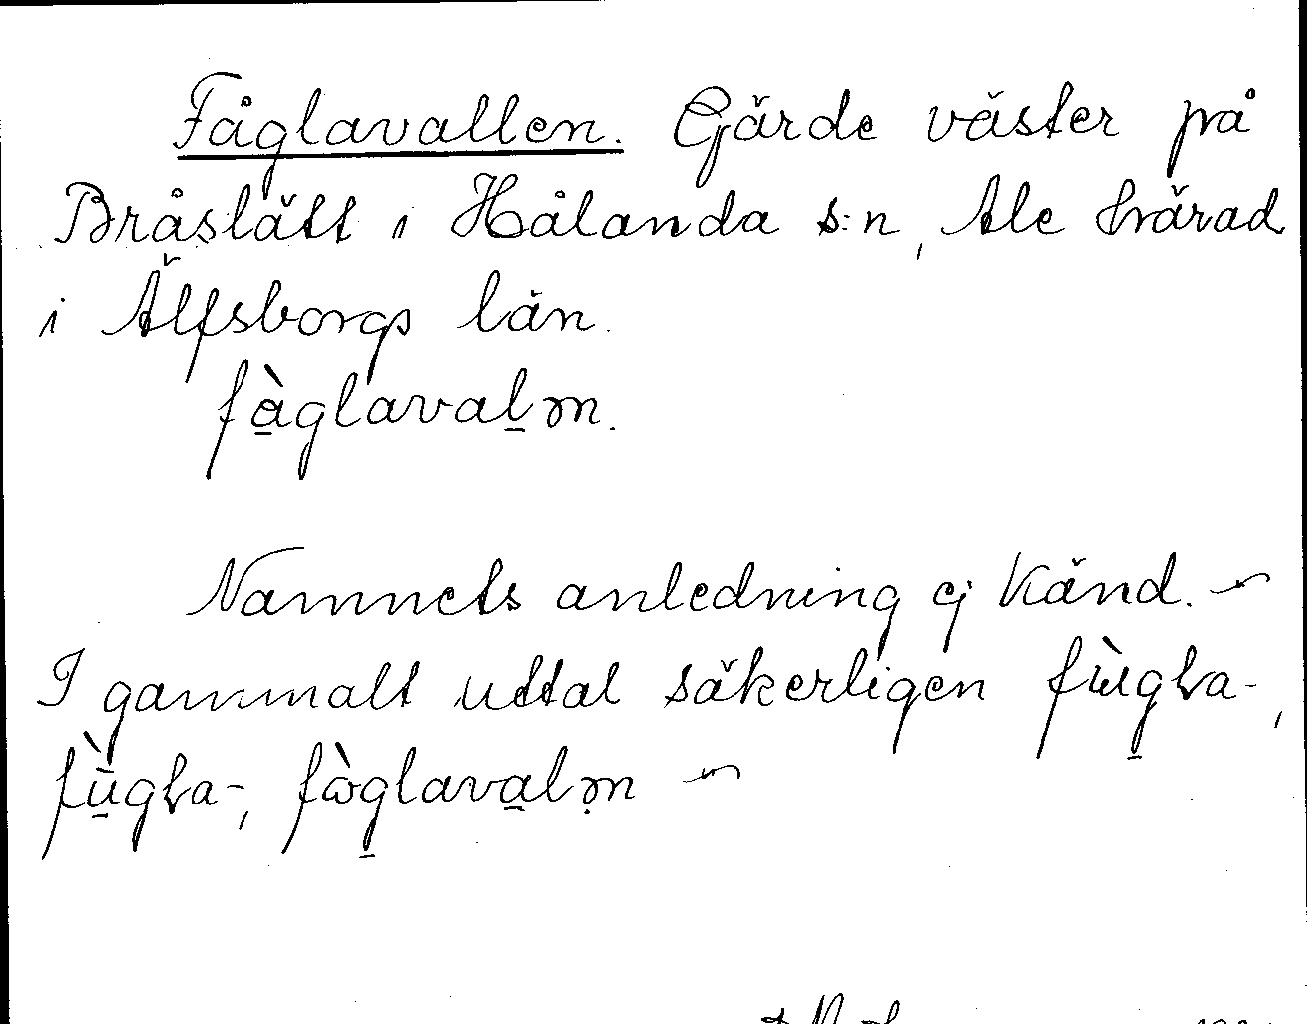 Fåglavallen. Gärde väster på
Bråslätt i Hålanda s:n, Ale härad
i Älfsborgs län.
fàglavalən.
Namnets anledning ej känd. ~
I gammalt uttal säkerligen fùgla-,
fùgla-, fòglavalən ~